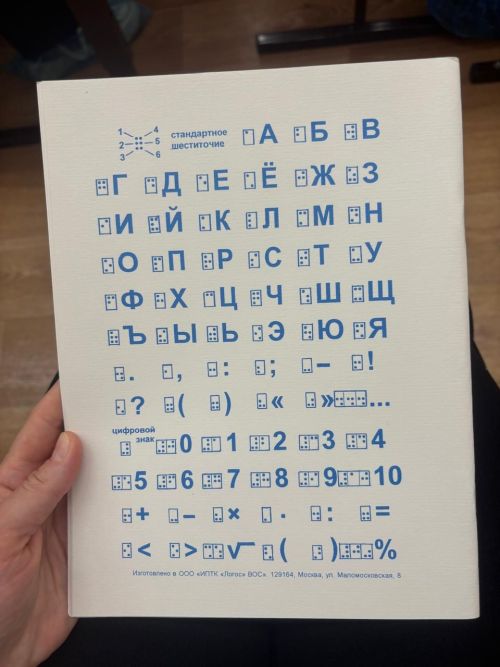 1 4 стандартное А Б В
2 5 шеститочие
3 6
Г Д Е Ё Ж З
И Й К Л М Н
О П Р С Т У
Ф Х Ц Ч Ш Щ
Ъ Ы Ь Э Ю Я
. , : ; – !
? ( ) « » ...
цифровой
знак 0 1 2 3 4
5 6 7 8 9 10
+ – × · : =
< > √ ( ) %
Изготовлено в ООО «ИПТК «Логос» ВОС». 129164, Москва, ул. Маломосковская, 8